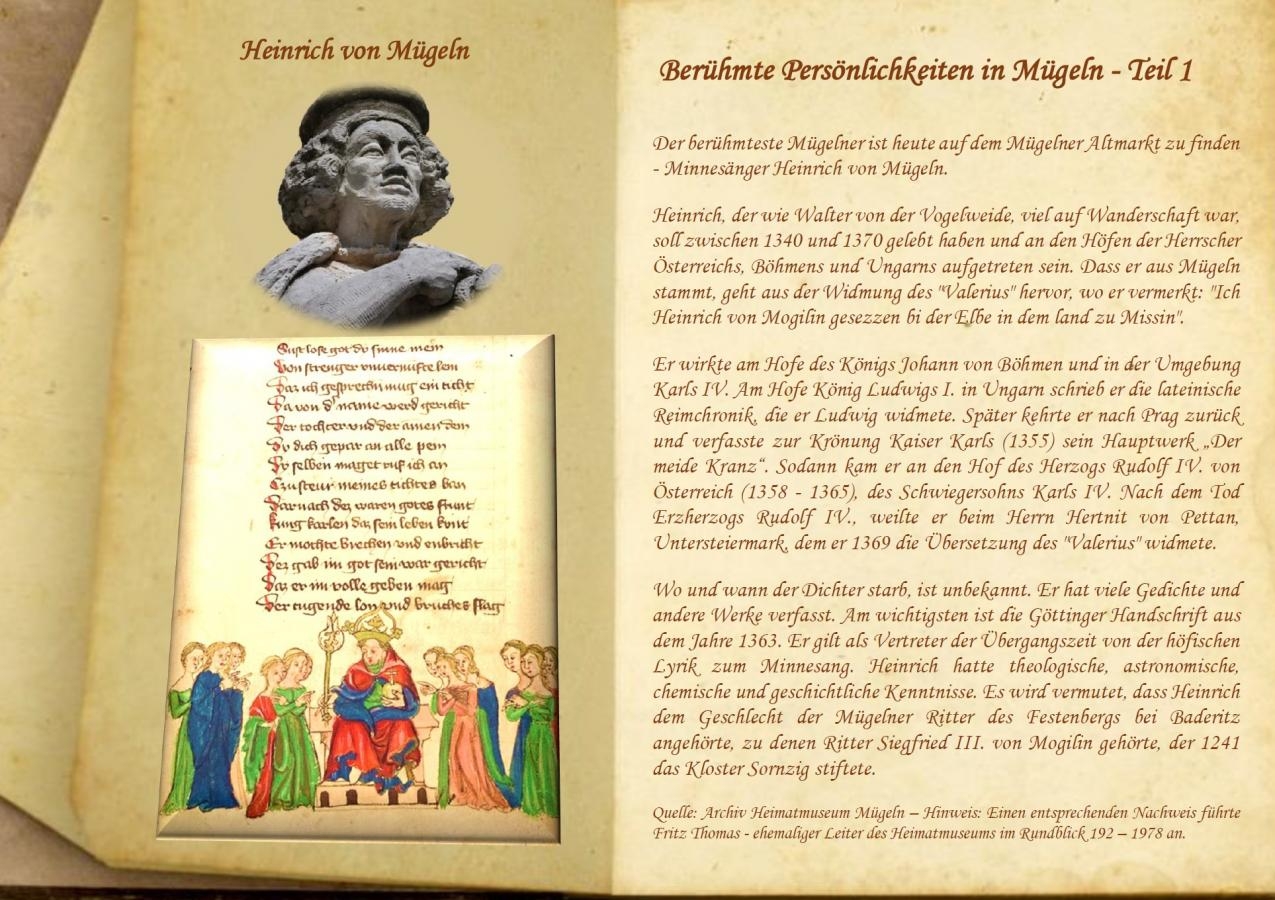 Heinrich von Mügeln
Berühmte Persönlichkeiten in Mügeln - Teil 1
Der berühmteste Mügelner ist heute auf dem Mügelner Altmarkt zu finden
- Minnesänger Heinrich von Mügeln.
Heinrich, der wie Walter von der Vogelweide, viel auf Wanderschaft war,
soll zwischen 1340 und 1370 gelebt haben und an den Höfen der Herrscher
Österreichs, Böhmens und Ungarns aufgetreten sein. Dass er aus Mügeln
stammt, geht aus der Widmung des "Valerius" hervor, wo er vermerkt: "Ich
Heinrich von Mogilin gesezzen bi der Elbe in dem land zu Missin".
Er wirkte am Hofe des Königs Johann von Böhmen und in der Umgebung
Karls IV. Am Hofe König Ludwigs I. in Ungarn schrieb er die lateinische
Reimchronik, die er Ludwig widmete. Später kehrte er nach Prag zurück
und verfasste zur Krönung Kaiser Karls (1355) sein Hauptwerk „Der
meide Kranz“. Sodann kam er an den Hof des Herzogs Rudolf IV. von
Österreich (1358 - 1365), des Schwiegersohns Karls IV. Nach dem Tod
Erzherzogs Rudolf IV., weilte er beim Herrn Hertnit von Pettan,
Untersteiermark, dem er 1369 die Übersetzung des "Valerius" widmete.
Wo und wann der Dichter starb, ist unbekannt. Er hat viele Gedichte und
andere Werke verfasst. Am wichtigsten ist die Göttinger Handschrift aus
dem Jahre 1363. Er gilt als Vertreter der Übergangszeit von der höfischen
Lyrik zum Minnesang. Heinrich hatte theologische, astronomische,
chemische und geschichtliche Kenntnisse. Es wird vermutet, dass Heinrich
dem Geschlecht der Mügelner Ritter des Festenbergs bei Baderitz
angehörte, zu denen Ritter Siegfried III. von Mogilin gehörte, der 1241
das Kloster Sornzig stiftete.
Quelle: Archiv Heimatmuseum Mügeln – Hinweis: Einen entsprechenden Nachweis führte
Fritz Thomas - ehemaliger Leiter des Heimatmuseums im Rundblick 192 – 1978 an.